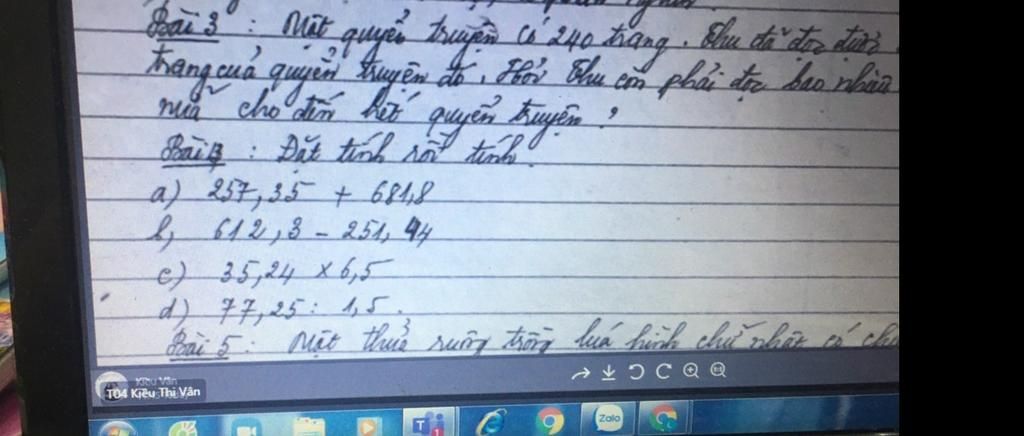 Bài 3 : Một quyển truyện có 240 trang. Thu đã đọc được
trang của quyển truyện đó. Hỏi Thu còn phải đọc bao nhiêu
nữa cho đến hết quyển truyện ?
Bài : Đặt tính rồi tính.
a) 257,35 + 681,8
b, 612,3 - 251,44
c) 35,24 x 6,5
d) 77,25 : 1,5.
Bài 5 : Một thửa ruộng trồng lúa hình chữ nhật có
Kiều Vân
T04 Kiều Thị Vân
Zalo